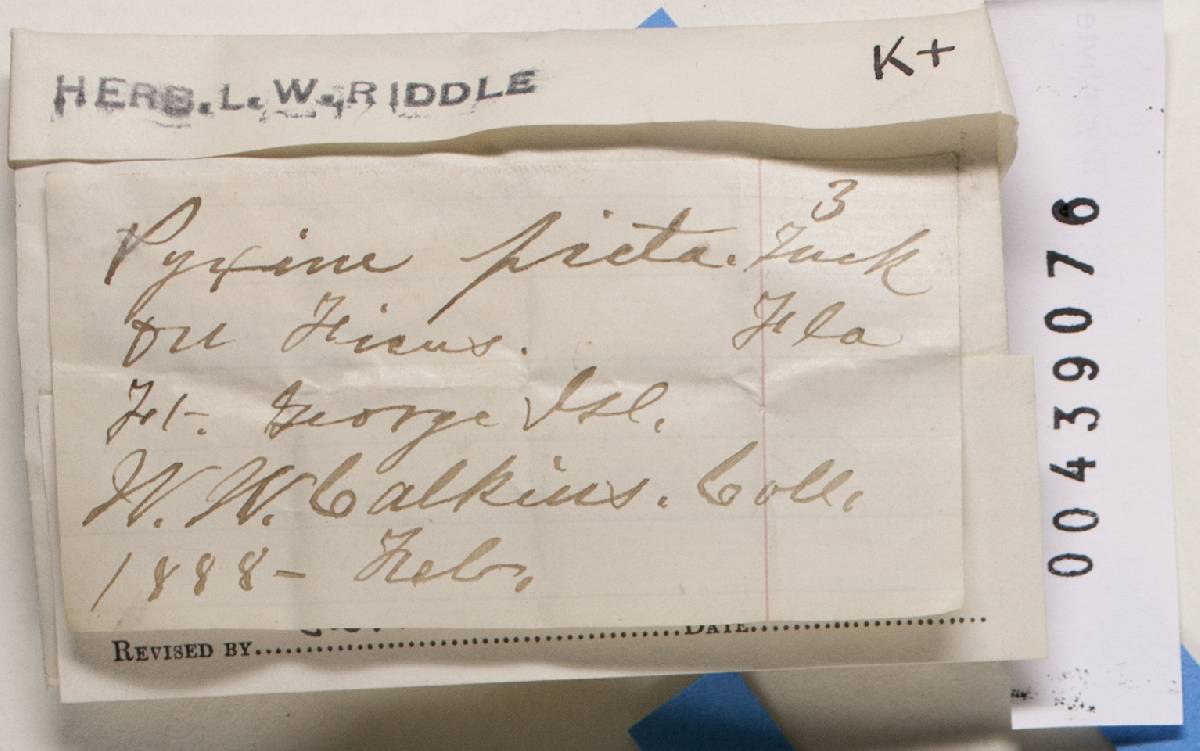 HERB. L. W. RIDDLE
K+
3
Pyxine picta. Tuck
on Ficus. Fla
Ft. George Isl.
W. W. Calkins. Coll.
1888 - Feb.
REVISED BY
DATE
00439076